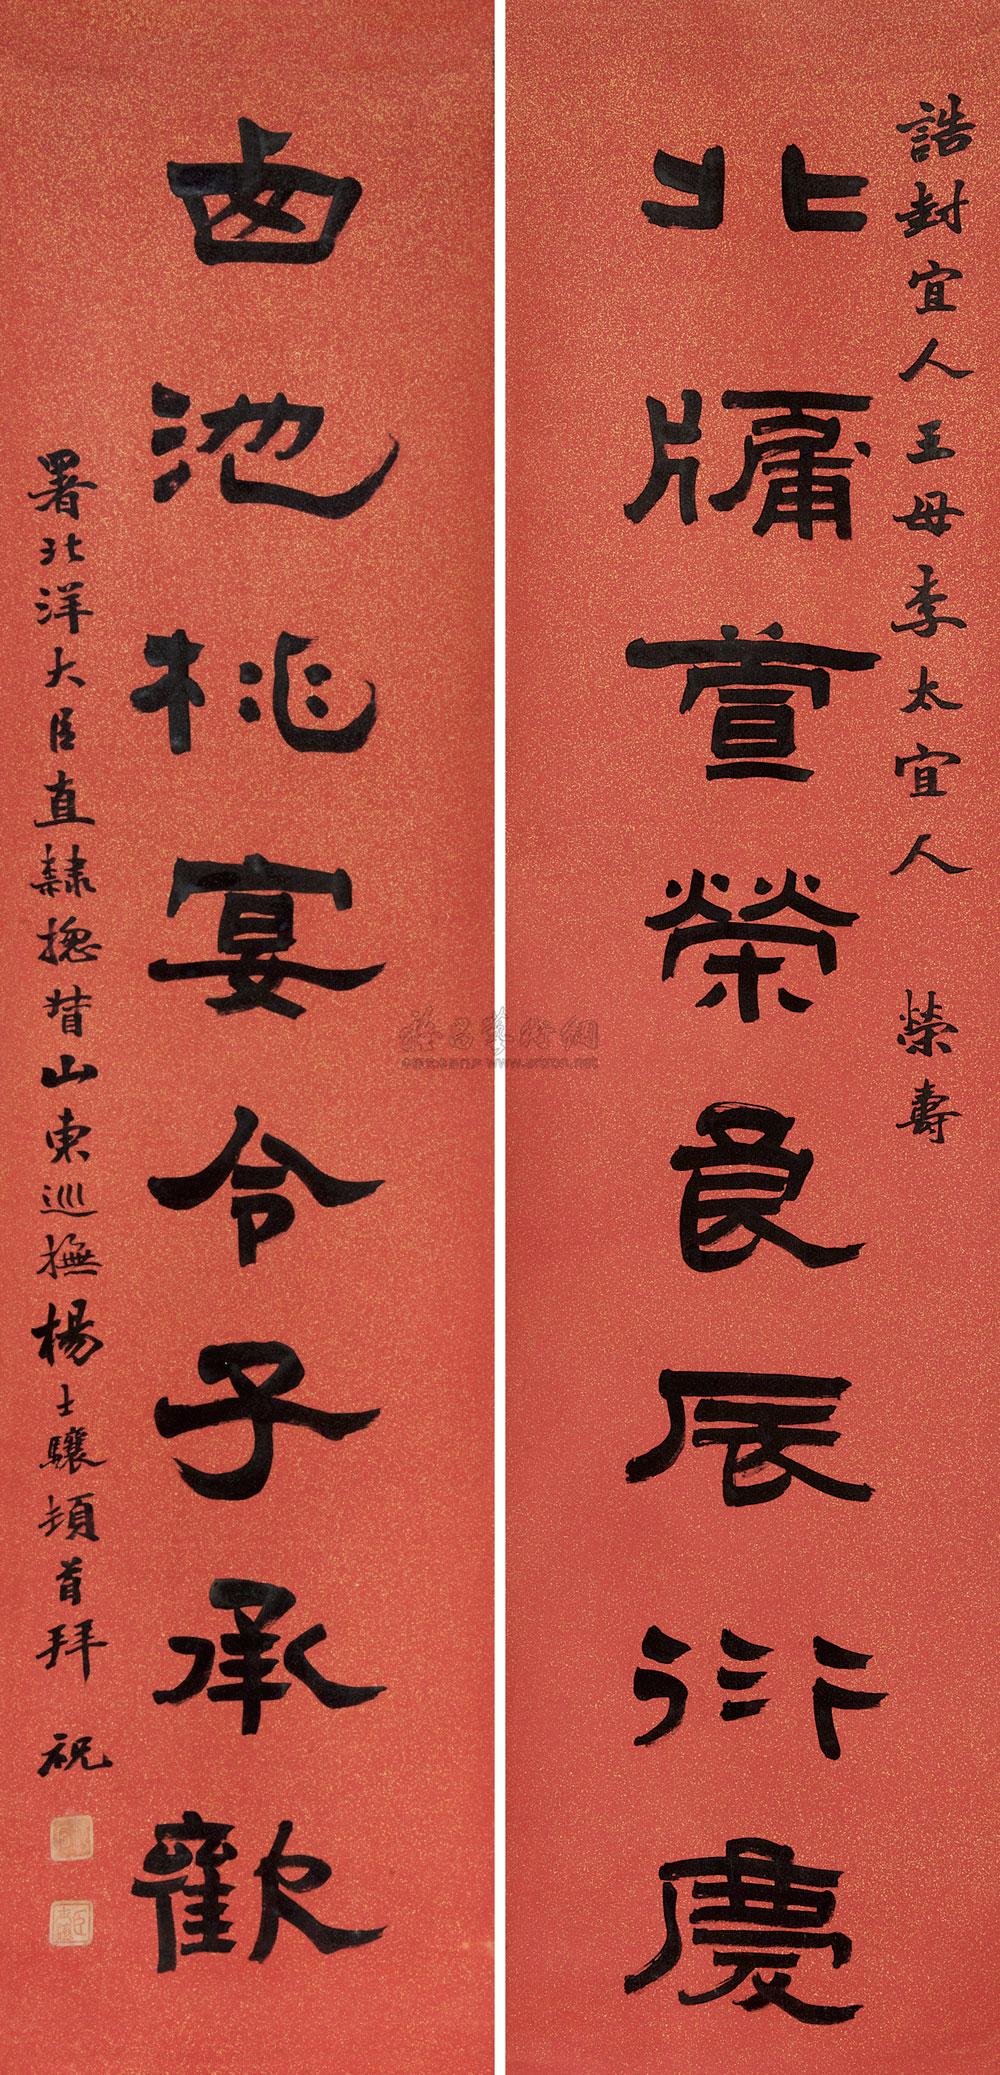 誥封宜人王母李太宜人 榮壽
北牖萱榮良辰衍慶
卥池桃宴令子承歡
署北洋大臣直隸揔督山東巡撫楊士驤頓首拜 祝
雅昌藝術網
www.artron.net